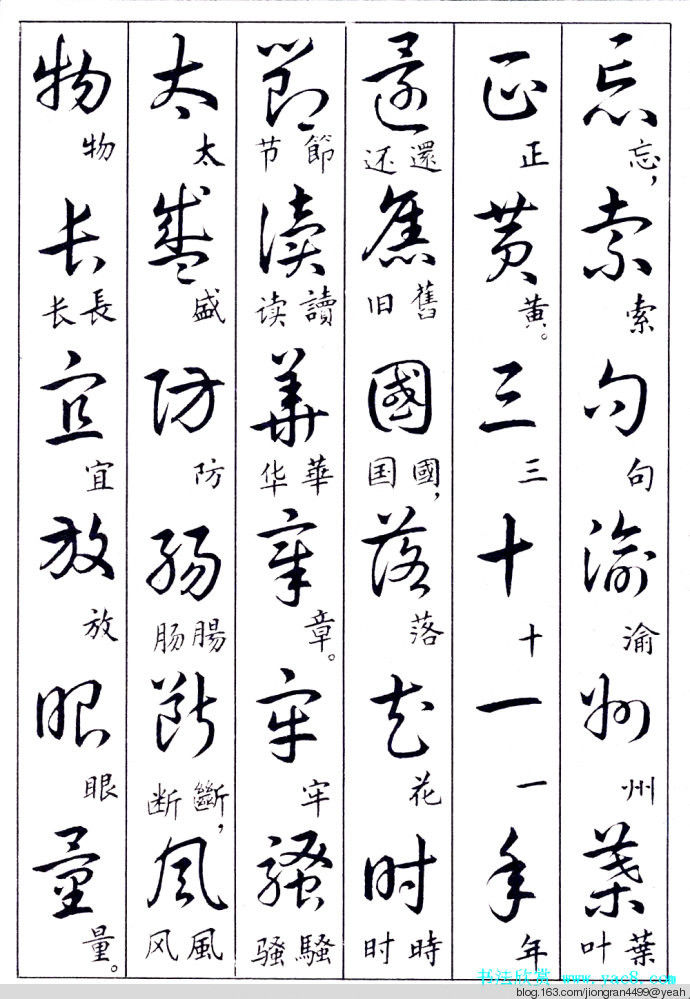 忘 忘， 索 索 句 句 渝 渝 州 州 葉 葉 叶
正 正 黄 黄。 三 三 十 十 一 一 年 年
還 還 还 舊 舊 旧 國 國， 国 落 落 花 花 时 時 时
節 節 节 讀 讀 读 華 華 华 章 章。 牢 牢 騷 騷 骚
太 太 盛 盛 防 防 腸 腸 肠 斷 斷， 断 風 風 风
物 物 长 長 长 宜 宜 放 放 眼 眼 量 量。
书法欣赏 www.yac8.com
blog.163.com/jiongran4499@yeah